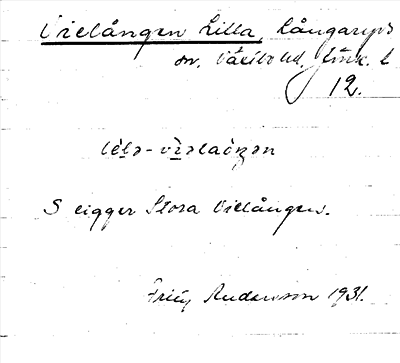 Vielången Lilla, Långaryds
sn. Västbo hd. Jönk. l
12.
lìlə-vìəlaòŋən
S ligger Stora Vielången.
Fritz Andersson 1931.